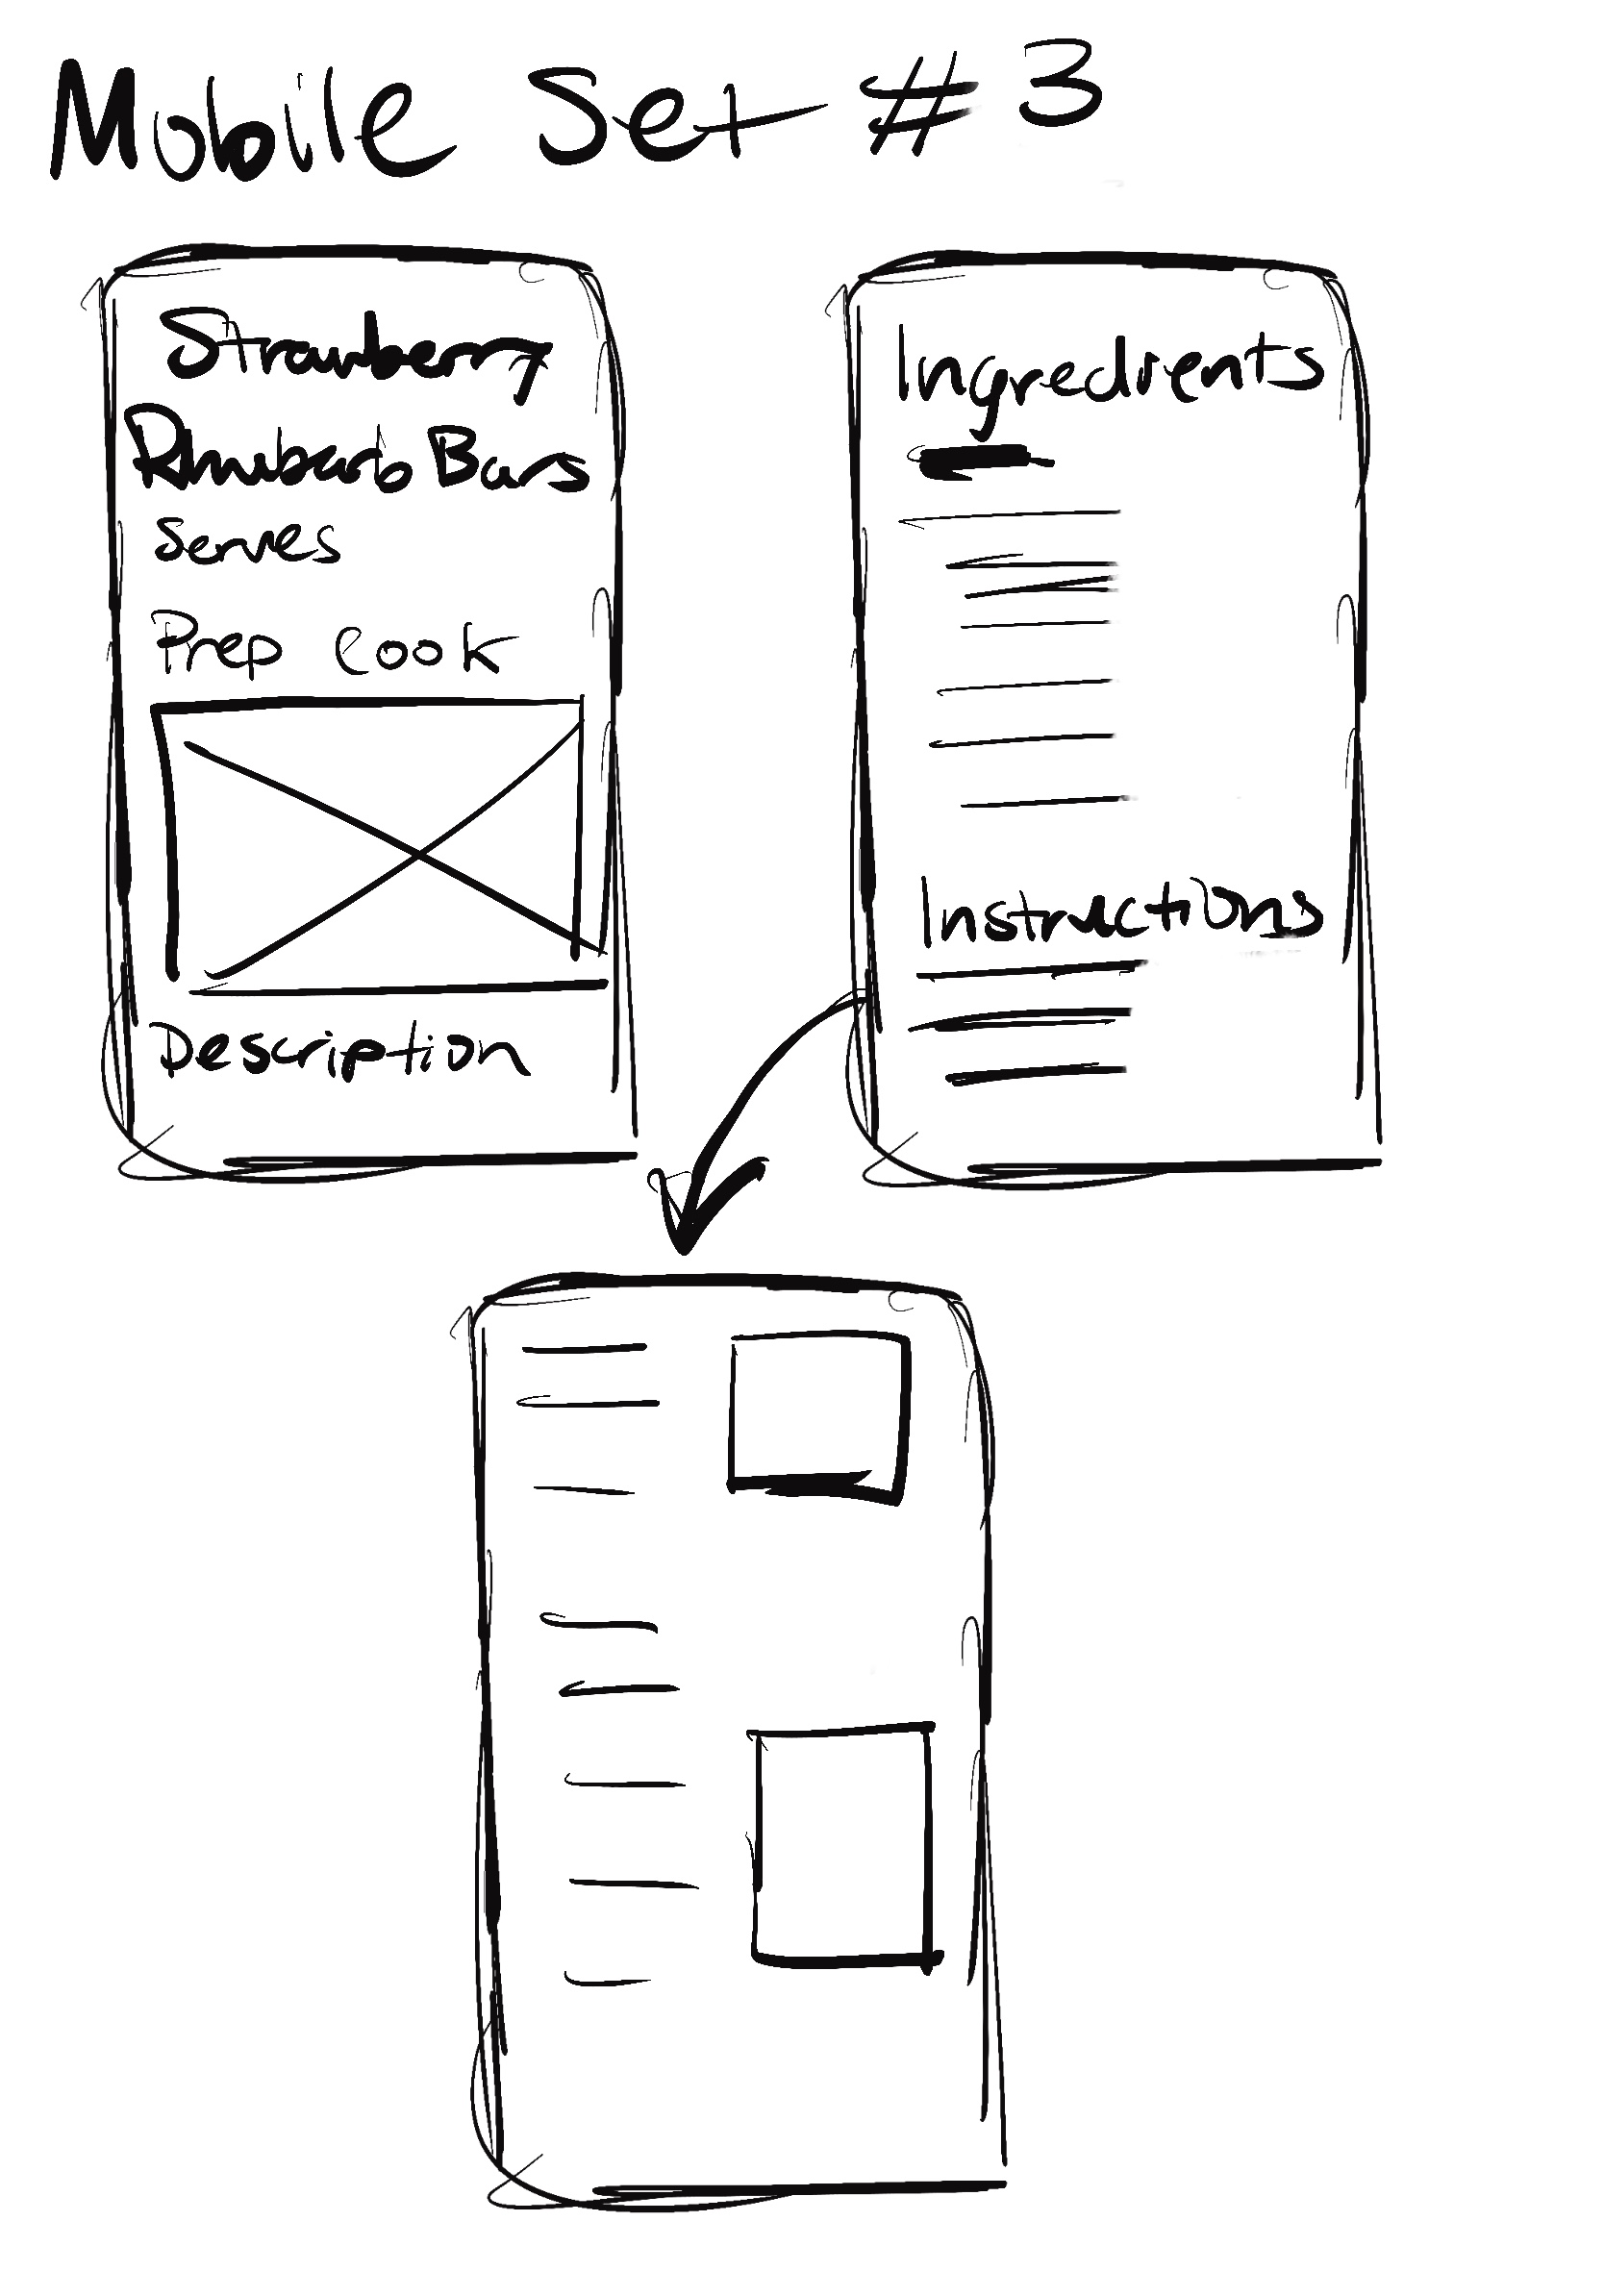 Mobile Set #3
Strawberry
Rhubarb Bars
Serves
Prep Cook
Description
Ingredients
Instructions